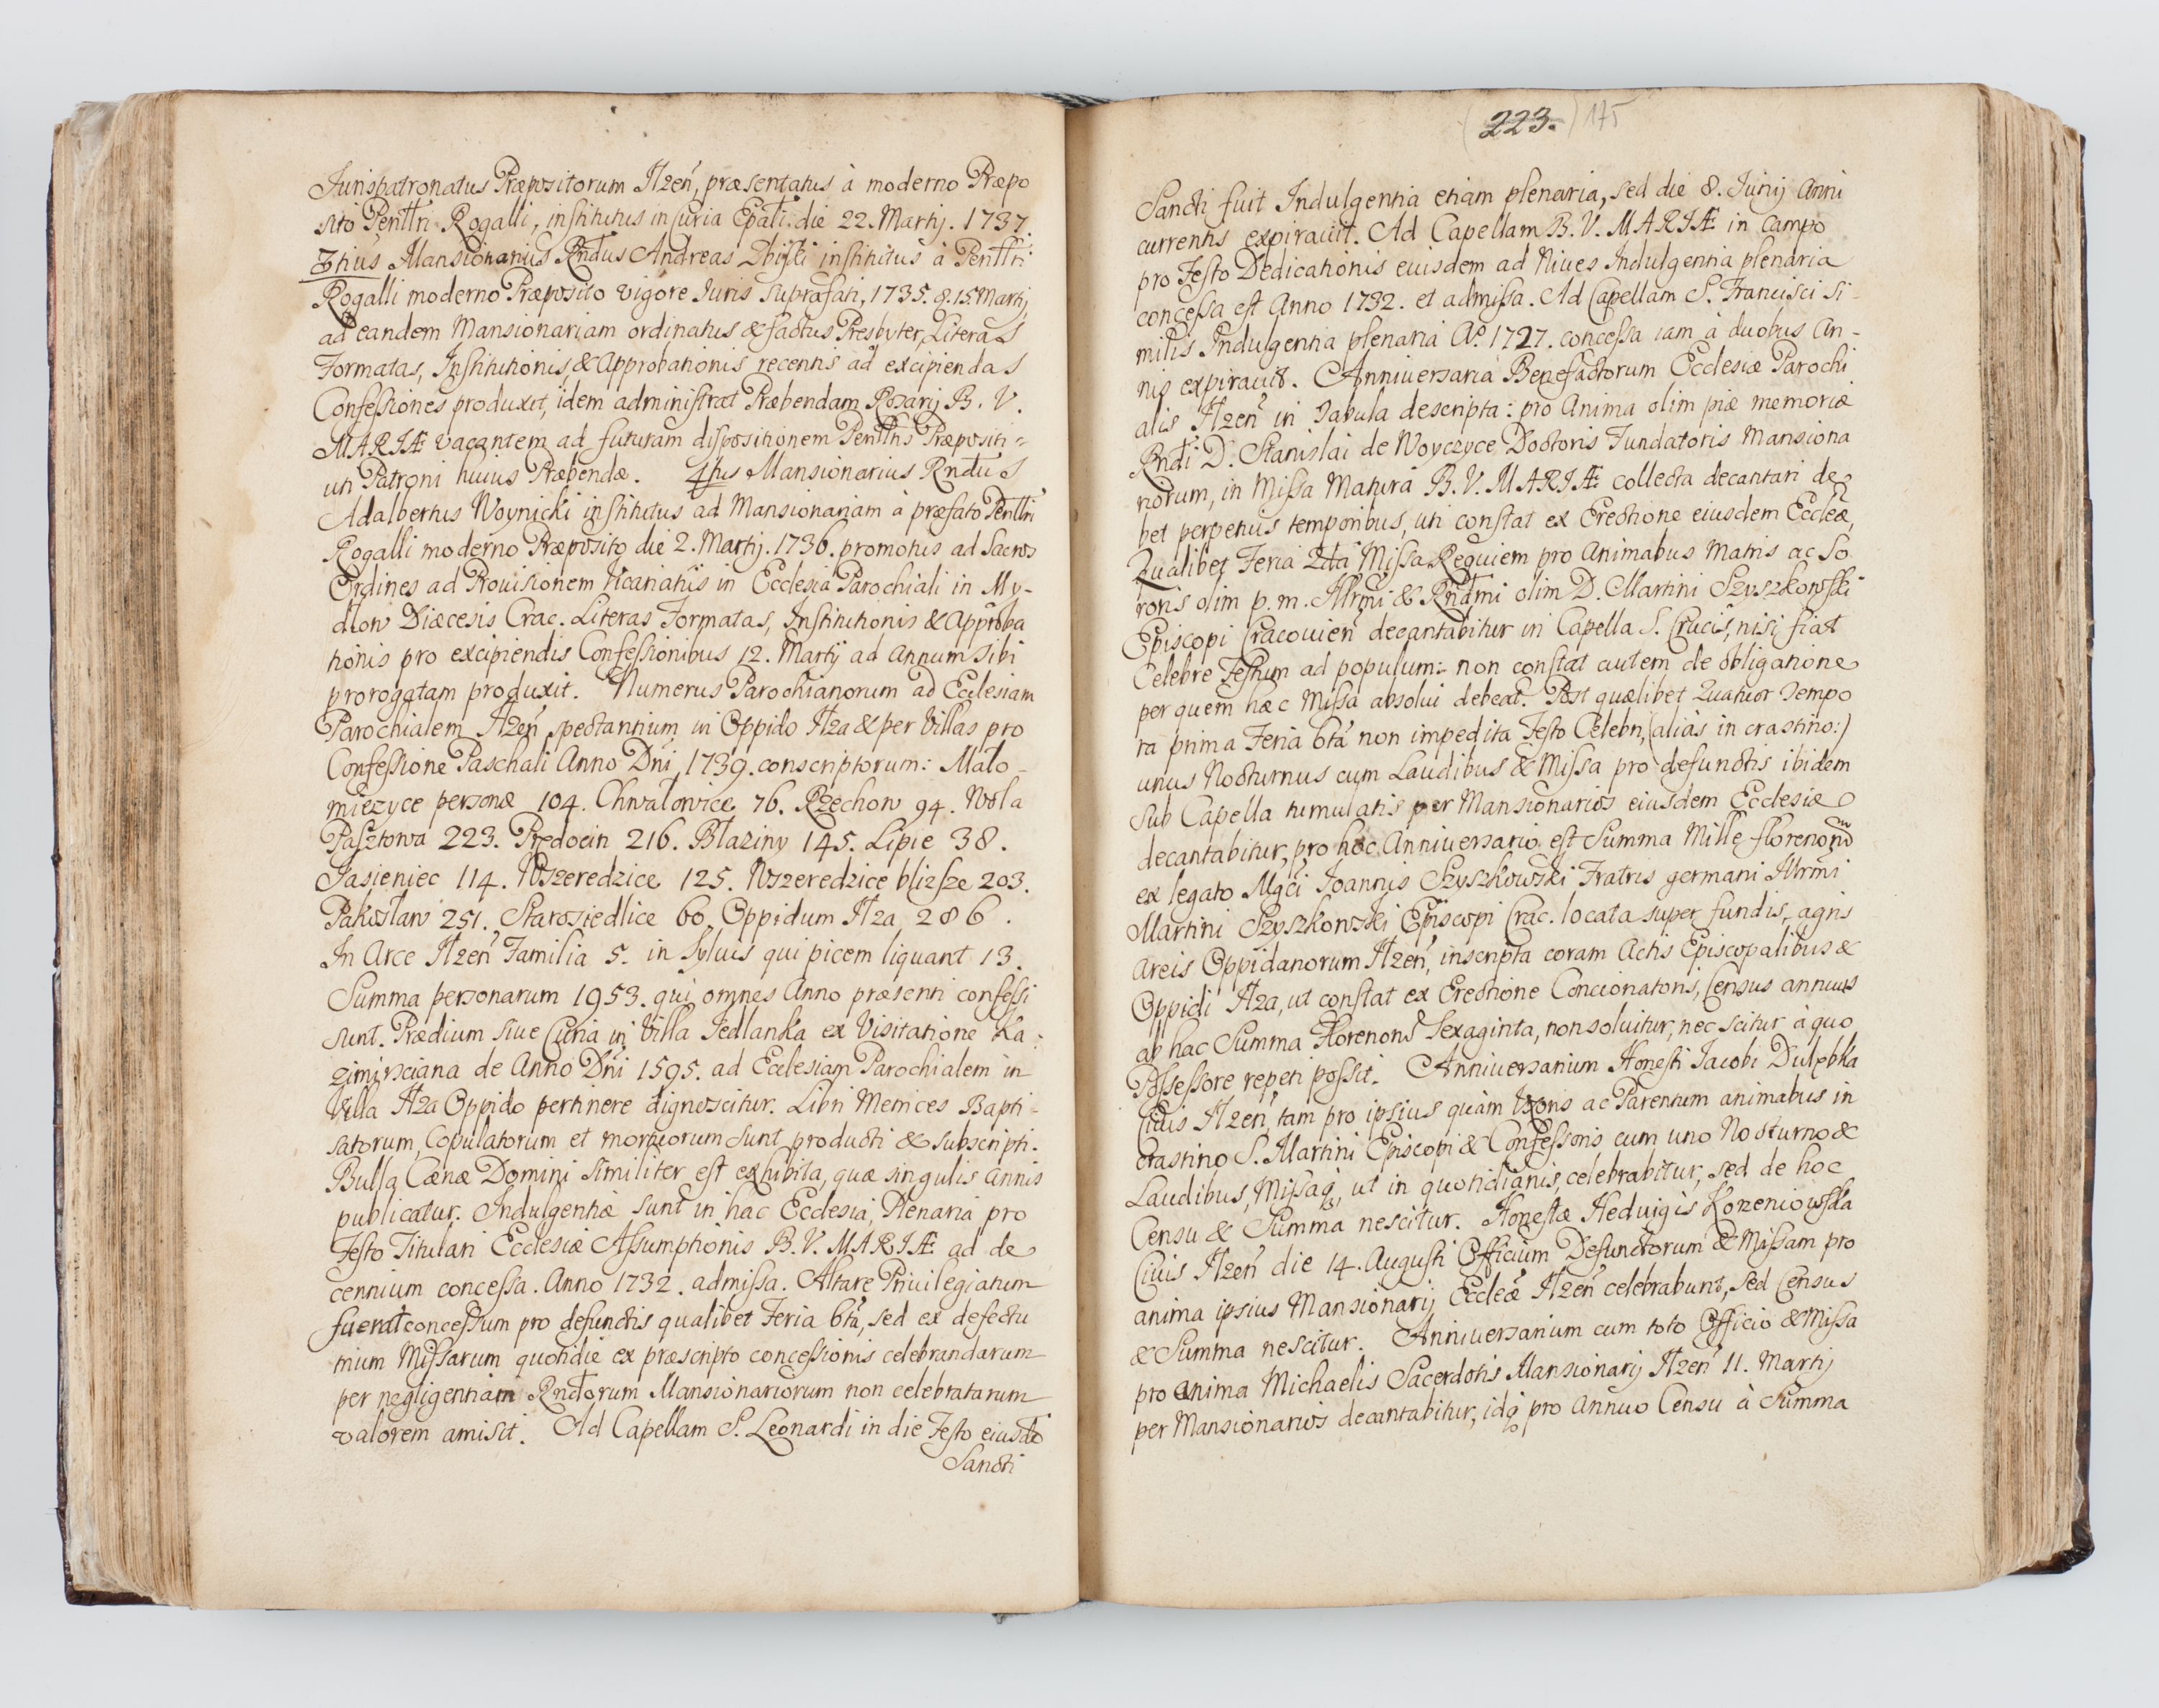 Jurispatronatus Præpositorum Ilzen̄, præsentatus à moderno Præpo
sito Penllri Rogalli, institutus in Curia Epāli die 22. Martij. 1737.
3tius Mansionarius Rndus Andreas institutus à Penllri
Rogalli moderno Præposito vigore Juris suprafati, 1735. d. 15. Martij,
ad eandem Mansionariam ordinatus & factus Presbyter, Literas
Formatas, Institutionis, & Approbationis recentis ad excipiendas
Confessiones produxit, idem administrat Præbendam Rosarij B. V.
MARIÆ vacantem ad futuram dispositionem Penllris Præpositi=
uti Patroni huius Præbendæ. 4tus Mansionarius Rndus
Adalbertus Woynicki institutus ad Mansionariam à præfato Penllri
Rogalli moderno Præposito die 2. Martij. 1736. promotus ad Sacros
Ordines ad Provisionem Vicariatûs in Ecclesia Parochiali in My-
dlow Diæcesis Crac. Literas Formatas, Institutionis & Approba
tionis pro excipiendis Confessionibus 12. Martij ad Annum sibi
prorogatam produxit. Numerus Parochianorum ad Ecclesiam
Parochialem Ilzen̄ spectantium in Oppido Ilza & per Villas pro
Confessione Paschali Anno Dn̄i 1739. conscriptorum: Mało-
mierzyce personæ 104. Chwałowice 76. Rzechow 94. Wola
Pasztowa 223. Prędocin 216. Błaziny 145. Lipie 38.
Jasieniec 114. Wszeredzice 125. Wszeredzice blizsze 203.
Pakosław 251. Starosiedlice 60. Oppidum Ilza 286.
In Arce Ilzen̄ Familia 5. in Sylvis qui picem liquant 13.
Summa personarum 1953. qui omnes Anno præsenti confessi
sunt. Prædium sive Curia in Villa Jedlanka ex Visitatione Ka-
zimirsciana de Anno Dn̄i 1595. ad Ecclesiam Parochialem in
Villa Ilza Oppido pertinere dignoscitur. Libri Metrices Bapti-
satorum, Copulatorum et mortuorum sunt producti & subscripti.
Bulla Cænæ Domini similiter est exhibita, quæ singulis annis
publicatur. Indulgentiæ sunt in hac Ecclesia, Plenaria pro
Festo Titulari Ecclesiæ Assumptionis B. V. MARIÆ ad de
cennium concessa. Anno 1732. admissa. Altare Privilegiatum
fuerat concessum pro defunctis qualibet Feria 6tâ, sed ex defectu
trium Missarum quotidie ex præscripto concessionis celebrandarum
per negligentiam Rndorum Mansionariorum non celebratarum
valorem amisit. Ad Capellam S. Leonardi in die Festo eiusdē
Sancti
(223.) 175
Sancti fuit Indulgentia etiam plenaria, sed die 8. Junij Anni
currentis expiravit. Ad Capellam B. V. MARIÆ in Campo
pro Festo Dedicationis eiusdem ad Nives Indulgentia plenaria
concessa est Anno 1732. et admissa. Ad Capellam S. Francisci si-
milis Indulgentia plenaria Ao. 1727. concessa iam à duobus An-
nis expiravit. Anniversaria Benefactorum Ecclesiæ Parochi
alis Ilzen̄ in Tabula descripta: pro Anima olim piæ memoriæ
Rndi D. Stanislai de Woyczyce Doctoris Fundatoris Mansiona
riorum, in Missa Matura B. V. MARIÆ collecta decantari de
bet perpetuis temporibus, uti constat ex Erectione eiusdem Eccleæ,
Qualibet Feria 2dâ Missa Requiem pro Animabus Matris ac So
roris olim p. m. Illrmi & Rndmi olim D. Martini Szyszkowski
Episcopi Cracovien̄ decantabitur in Capella S. Crucis, nisi fiat
Celebre Festum ad populum: non constat autem de obligatione
per quem hæc Missa absolvi debeat. Post quælibet Quatuor Tempo
ra prima Feria 6tâ non impedita Festo Celebri, (aliàs in crastino:)
unus Nocturnus cum Laudibus & Missa pro defunctis ibidem
sub Capella tumulatis per Mansionarios eiusdem Ecclesiæ
decantabitur, pro hoc Anniversario est Summa Mille florenorum
ex legato Mgci Joannis Szyszkowski Fratris germani Illrmi
Martini Szyszkowski Episcopi Crac. locata super fundis, agris
Areis Oppidanorum Ilzen̄, inscripta coram Actis Episcopalibus &
Oppidi Ilza, ut constat ex Erectione Concionatoris, Census annuus
ab hac Summa Florenorum Sexaginta, non solvitur, nec scitur à quo
Possessore repeti possit. Anniversarium Honesti Jacobi Dulębka
Civis Ilzen̄, tam pro ipsius quàm Uxoris ac Parentum animabus in
Crastino S. Martini Episcopi & Confessoris cum uno Nocturno &
Laudibus, Missaq, ut in quotidianis, celebrabitur, sed de hoc
Censu & Summa nescitur. Honestæ Hedvigis Korzeniowska
Civis Ilzen̄ die 14. Augusti Officium Defunctorum & Missam pro
anima ipsius Mansionarij Eccleæ Ilzen̄ celebrabunt, sed Census
& Summa nescitur. Anniversarium cum toto Officio & Missa
pro anima Michaelis Sacerdotis Mansionarij Ilzen̄ 11. Martij
per Mansionarios decantabitur, idq pro Annuo Censu à Summa